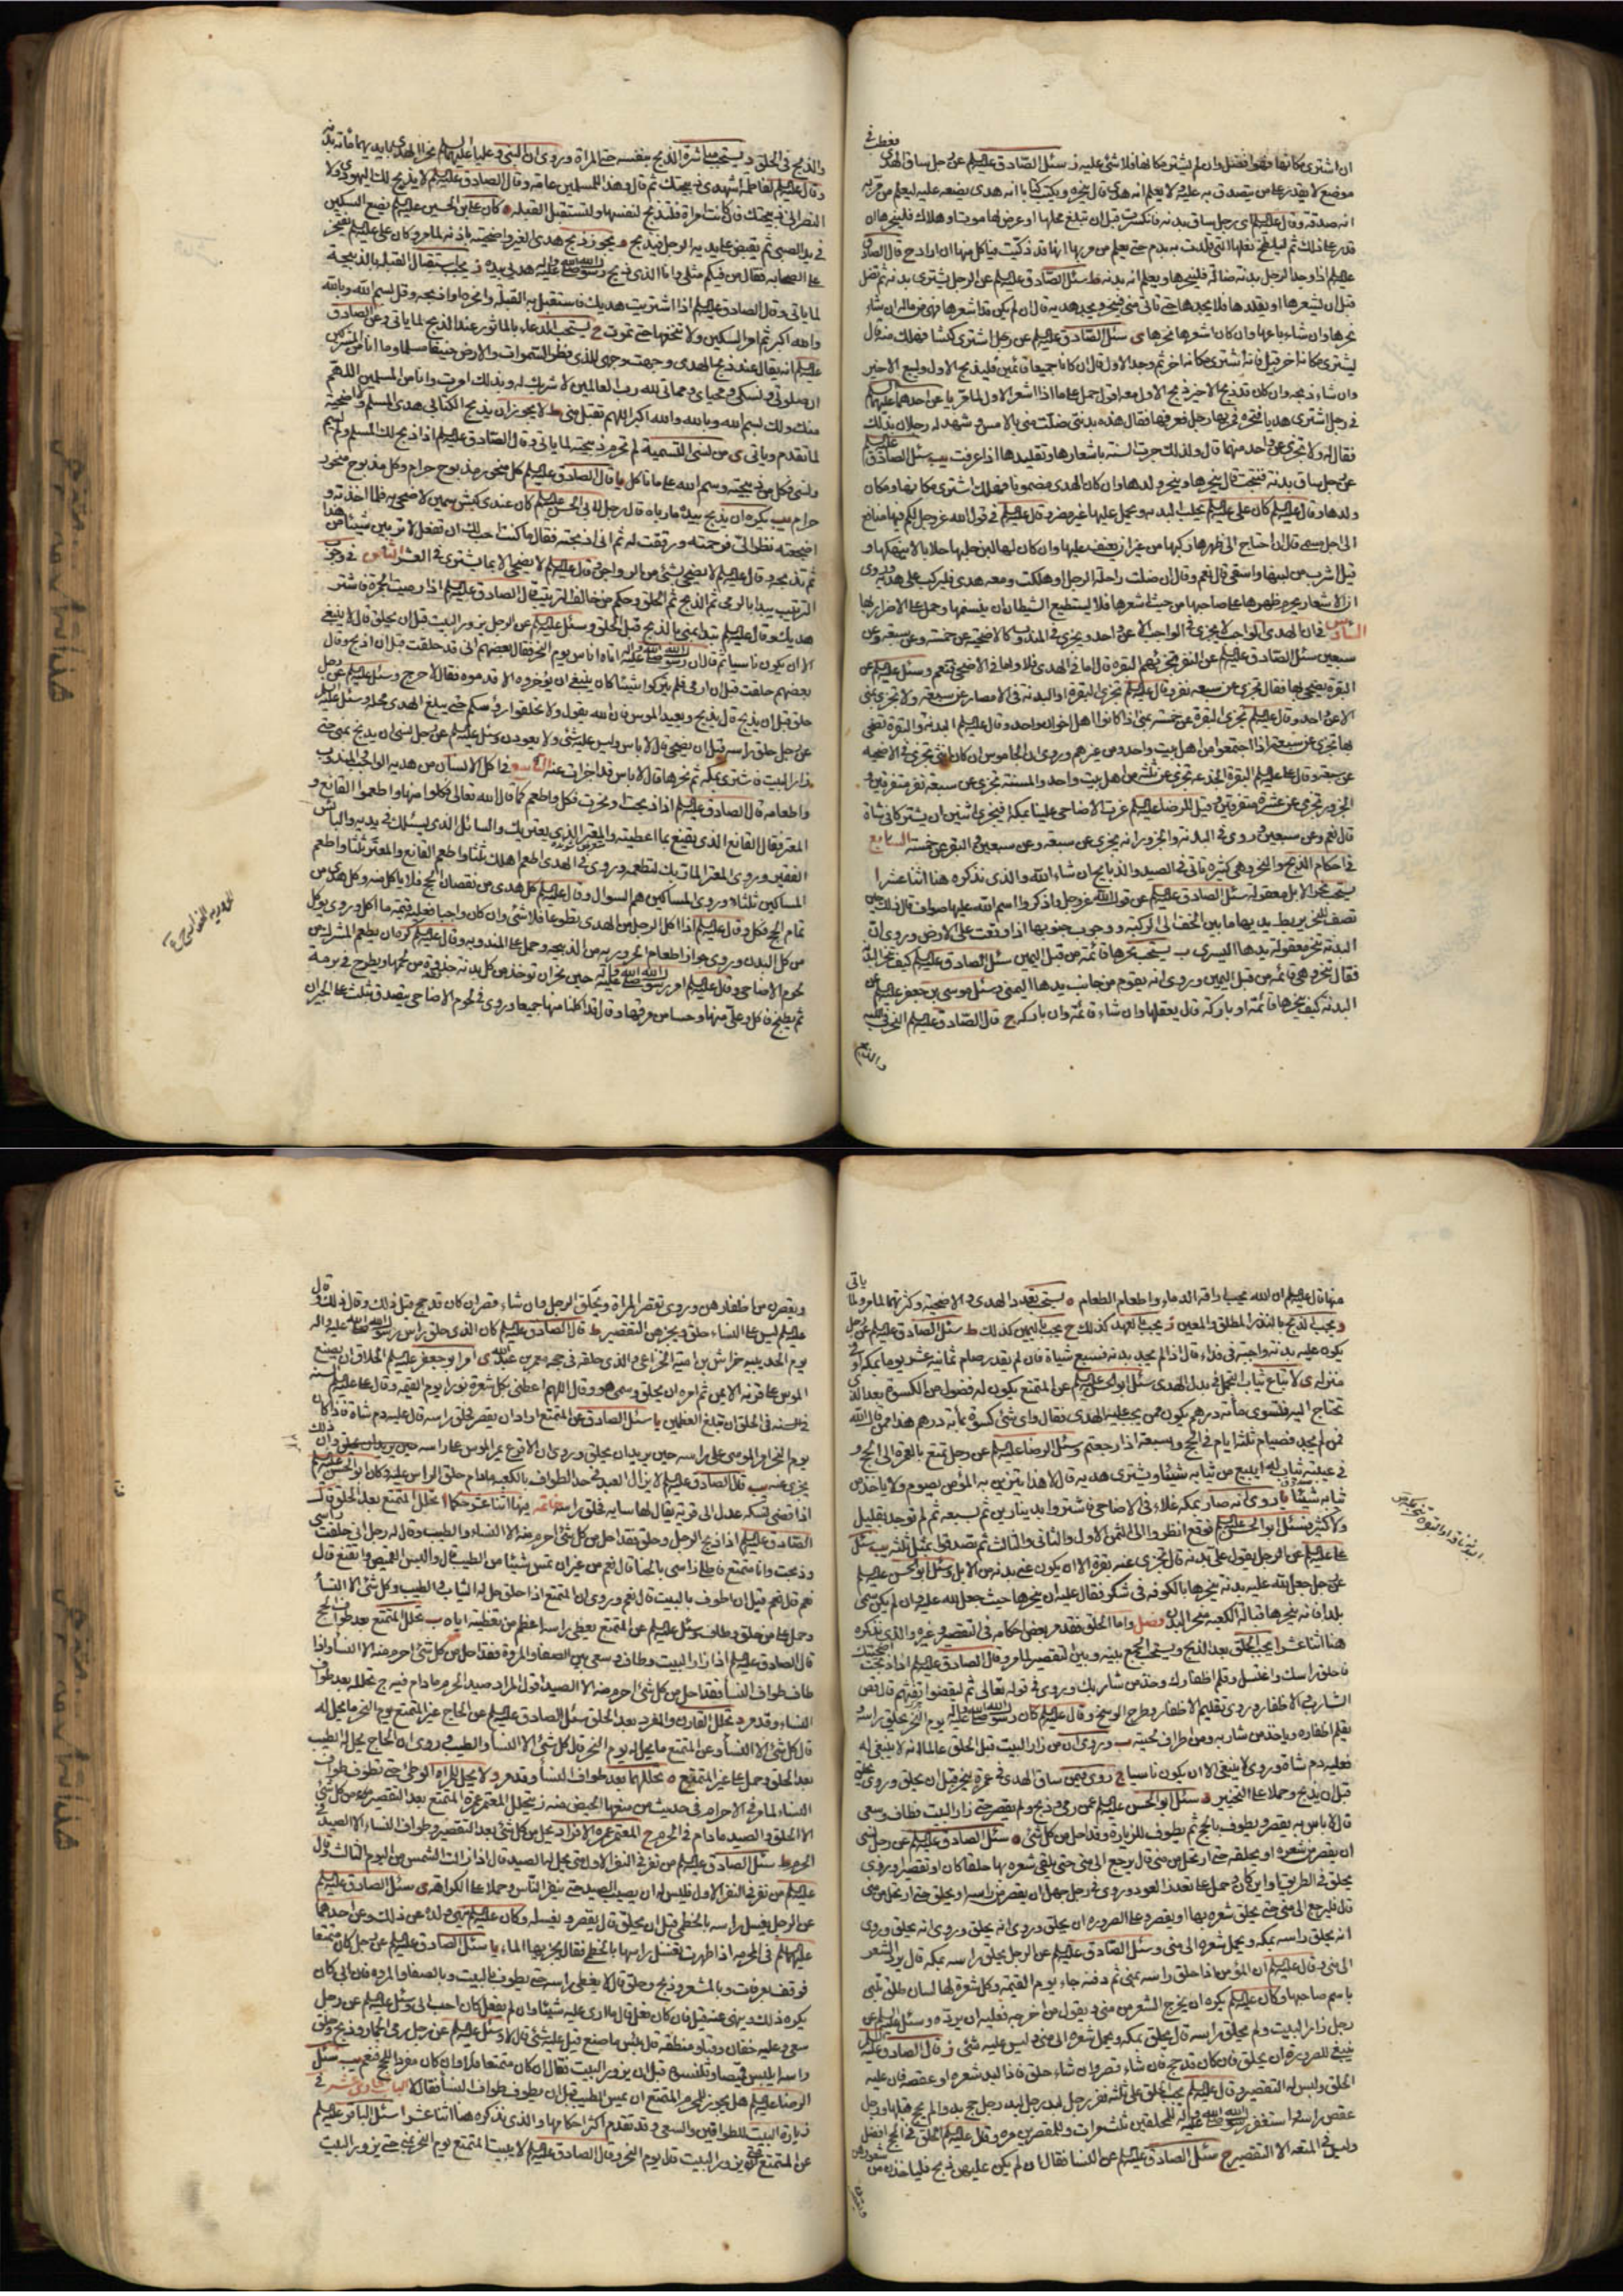 ان اشترى مكانها فهو افضل وان لم يشتر مكانها فلا شئ عليه ز سئل الصادق عليه السلم عن رجل ساق الهدى فعطب في
موضع لا يقدر على من يتصدق به عليه ولا يعلم انه هدى قال ينحره ويكتب كتابا انه هدى يضعه عليه ليعلم من مر به
انه صدقة وقال عليه السلم اى رجل ساق بدنة فانكسرت قبل ان تبلغ محلها او عرض لها موت او هلاك فلينحرها ان
قدر على ذلك ثم ليلطخ نعلها التى قلدت به بدم حتى يعلم من مر بها انها قد ذكيت فياكل منها ان اراد ح قال الصادق
عليه السلم اذا وجد الرجل بدنة ضالة فلينحرها ويعلم انه بدنة ط سئل الصادق عليه السلم عن الرجل يشترى بدنة ثم تضل
قبل ان يشعرها او يقلدها فلا يجدها حتى ياتى منى فينحر ويجد هديه قال ان لم يكن قد اشعرها فهى من ماله ان شاء
نحرها وان شاء باعها وان كان اشعرها نحرها ى سئل الصادق عليه السلم عن رجل اشترى كبشا فهلك منه قال
يشترى مكانه اخر قيل فانه اشترى مكانه اخر ثم وجد الاول قال ان كانا جميعا قائمين فليذبح الاول وليبع الاخير
وان شاء ذبحه وان كان قد ذبح الاخير ذبح الاول معه اقول حمل على ما اذا اشعر الاول لما مر يا عن احدهما عليهما السلم
في رجل اشترى هديا فنحره فمر بها رجل فعرفها فقال هذه بدنتى ضلت منى بالامس وشهد له رجلان بذلك
فقال له ولا تجزى عن واحد منهما قال ولذلك جرت السنة باشعارها وتقليدها اذا عرفت يب سئل الصادق عليه السلم
عن رجل ساق بدنة فنتجت قال ينحرها وينحر ولدها وان كان الهدى مضمونا فهلك اشترى مكانها ومكان
ولدها وقال عليه السلم كان على عليه السلم يحلب البدنة ويحمل عليها غير مضر وقال عليه السلم في قول الله عز وجل لكم فيها منافع
الى اجل مسمى قال ان احتاج الى ظهرها ركبها من غير ان يعنف عليها وان كان لها لبن حلبها حلابا لا ينهكها و
قيل اشرب من لبنها واسقى قال نعم وقال ان ضلت راحلة الرجل او هلكت ومعه هدى فليركب على هديه وروى
السادس في ان الهدى الواجب لا يجزى في الواجب الا عن واحد ويجزى في المندوب كالاضحية عن خمسة وعن سبعة وعن
سبعين سئل الصادق عليه السلم عن النفر تجزيهم البقرة قال اما في الهدى فلا واما في الاضحى فنعم وسئل عليه السلم عن
البقرة يضحى بها فقال تجزى عن سبعة نفر وقال عليه السلم تجزى البقرة او البدنة في الامصار عن سبعة ولا تجزى بمنى
الا عن واحد وقال عليه السلم تجزى البقرة عن خمسة بمنى اذا كانوا اهل خوان واحد وقال عليه السلم البدنة والبقرة تضحى
بها تجزى عن سبعة اذا اجتمعوا من اهل بيت واحد ومن غيرهم وروى ان الجاموس ان كان انثى تجزى في الاضحية
عن سبعة وقال على عليه السلم البقرة الجذعة تجزى عن ثلثة من اهل بيت واحد والمسنة تجزى عن سبعة نفر متفرقين و
الجزور تجزى عن عشرة متفرقين وقيل للرضا عليه السلم عزت الاضاحى علينا بمكة افيجزى اثنين ان يشتركا في شاة
قال نعم وعن سبعين وروى في البدنة والجزور انه يجزى عن سبعة وعن سبعين في البقر عن خمسة السابع
في احكام الذبح والنحر وهى كثيرة تاتى في الصيد والذبايح ان شاء الله والذى نذكره هنا اثنا عشر ا
يستحب نحر الابل معقولة سئل الصادق عليه السلم عن قول الله عز وجل فاذكروا اسم الله عليها صواف قال ذلك حين
تصف للنحر يربط يديها ما بين الخف الى الركبة ووجوب جنوبها اذا وقعت على الارض وروى ان
البدنة تنحر معقولة يدها اليسرى ب يستحب نحرها قائمة من قبل اليمين سئل الصادق عليه السلم كيف تنحر البدنة
فقال تنحر وهى قائمة من قبل اليمين وروى انه يقوم من جانب يدها اليمنى وسئل موسى بن جعفر عليه السلم عن
البدنة كيف ينحرها قائمة او باركة قال يعقلها وان شاء قائمة وان باركة ج قال الصادق عليه السلم النحر في اللبة
والذبح
والذبح في الحلق د يستحب مباشرة الذبح بنفسه حتى المراة وروى ان النبى وعليا عليهما السلم نحرا الهدى بايديهما مائة بدنة
وقال عليه السلم لفاطمة اشهدى ذبيحتك ثم قال وهذا للمسلمين عامة وقال الصادق عليه السلم لا يذبح لك اليهودى ولا
النصرانى ذبيحتك فان كانت امراة فلتذبح لنفسها ولتستقبل القبلة ه كان على بن الحسين عليه السلم يضع السكين
في يد الصبى ثم يقبض على يديه الرجل فيذبح و يجوز ذبح هدى الغير واضحيته باذنه لما مر وكان على عليه السلم يفتخر
على الصحابة فقال من فيكم مثلى وانا الذى ذبح رسول الله صلى الله عليه واله هديى بيده ز يجب استقبال القبلة بالذبيحة
لما ياتى وقال الصادق عليه السلم اذا اشتريت هديك فاستقبل به القبلة وانحره او اذبحه وقل بسم الله وبالله
والله اكبر ثم امر السكين ولا تنخعها حتى تموت ح يستحب الدعاء بالماثور عند الذبح لما ياتى وعن الصادق
عليه السلم انه يقال عند ذبح الهدى وجهت وجهى للذى فطر السموات والارض حنيفا مسلما وما انا من المشركين
ان صلوتى ونسكى ومحياى ومماتى لله رب العالمين لا شريك له وبذلك امرت وانا من المسلمين اللهم
منك ولك بسم الله وبالله والله اكبر اللهم تقبل منى ط لا يجوز ان يذبح الكتابى هدى المسلم ولا اضحيته
لما تقدم وياتى ى من نسى التسمية لم تحرم ذبيحته لما ياتى وقال الصادق عليه السلم اذا ذبح لك المسلم ولم يسم
ونسى فكل من ذبيحته وسم الله على ما تاكل يا قال الصادق عليه السلم كل منحور مذبوح حرام وكل مذبوح منحور
حرام يب يكره ان يذبح بيده ما رباه قال رجل لابى الحسن عليه السلم كان عندى كبش سمين لاضحى به فلما اخذته و
اضجعته نظر الى فرحمته ورققت له ثم انى ذبحته فقال ما كنت احب لك ان تفعل لا تربين شيئا من هذا
ثم تذبحه وقال عليه السلم لا يضحى بشئ من الدواجن وقال عليه السلم لا يضحى الا بما يشترى في العشر الثامن في وجوب
الترتيب يبدا بالرمى ثم الذبح ثم الحلق وحكم من خالف الترتيب قال الصادق عليه السلم اذا رميت الجمرة فاشتر
هديك وقال عليه السلم تبدا بمنى بالذبح قبل الحلق وسئل عليه السلم عن الرجل يزور البيت قبل ان يحلق قال لا ينبغى
الا ان يكون ناسيا ثم قال ان رسول الله صلى الله عليه واله اتاه اناس يوم النحر فقال بعضهم انى قد حلقت قبل ان اذبح وقال
بعضهم حلقت قبل ان ارمى فلم يتركوا شيئا كان ينبغى ان يؤخروه الا قدموه فقال لا حرج وسئل عليه السلم عن رجل
حلق قبل ان يذبح قال يذبح ويعيد الموسى لان الله يقول ولا تحلقوا رؤسكم حتى يبلغ الهدى محله وسئل عليه السلم
عن رجل حلق راسه قبل ان يضحى قال لا باس وليس عليه شئ ولا يعودن وسئل عليه السلم عن رجل نسى ان يذبح بمنى حتى
زار البيت فاشترى بمكة ثم نحرها قال لا باس قد اجزات عنه التاسع في اكل الانسان من هديه الواجب والمندوب
واطعامه قال الصادق عليه السلم اذا ذبحت او نحرت فكل واطعم كما قال الله تعالى فكلوا منها واطعموا القانع و
المعتر فقال القانع الذى يقنع بما اعطيته والمعتر الذى يعتريك والسائل الذى يسئلك في يديه والبائس
الفقير وروى المعتر المار بك لتطعمه وروى في الهدى اطعم اهلك ثلثا واطعم القانع والمعتر ثلثا واطعم
المساكين ثلثا وروى المساكين هم السؤال وقال عليه السلم كل هدى من نقصان الحج فلا ياكل منه وكل هدى من
تمام الحج فكل وقال عليه السلم اذا اكل الرجل من الهدى تطوعا فلا شئ وان كان واجبا فعليه قيمة ما اكل وروى يوكل
من كل البدن وروى جواز اطعام الحرورية من الذبيحة وحمل على المندوبة وقال عليه السلم كره ان يطعم المشركين من
لحوم الاضاحى وقال عليه السلم امر رسول الله صلى الله عليه واله حين نحر ان توخذ من كل بدنة حذوة من لحمها ويطرح في برمة
ثم يطبخ فاكل وعلى منها وحسا من مرقها وقال قد اكلنا منها جميعا وروى في لحوم الاضاحى يتصدق بثلث على الجيران
منها قال عليه السلم ان الله يحب اراقة الدماء واطعام الطعام ه يستحب تعدد الهدى والاضحية وكثرتهما لما مر ولما ياتى
و يجب الذبح بالنذر المطلق والمعين ز يجب بالعهد كذلك ح يجب باليمين كذلك ط سئل الصادق عليه السلم عن رجل
يكون عليه بدنة واجبة في فداء قال اذا لم يجد بدنة فسبع شياة فان لم يقدر صام ثمانية عشر يوما بمكة او في
منزله ى لا تباع ثياب التجمل في بدل الهدى سئل ابو الحسن عليه السلم عن المتمتع يكون له فضول من الكسوة بعد الذى
تحتاج اليه فتسوى مائة درهم يكون ممن يجب عليه الهدى فقال واى شئ كسوة بمائة درهم هذا ممن قال الله
فمن لم يجد فصيام ثلثة ايام في الحج وسبعة اذا رجعتم وسئل الرضا عليه السلم عن رجل تمتع بالعمرة الى الحج و
في عيبته ثياب له ايبيع من ثيابه شيئا ويشترى هديه قال لا هذا يتزين به المؤمن يصوم ولا ياخذ من
ثيابه شيئا يا روى انه صار بمكة غلاء في الاضاحى فاشتروا بدينارين ثم بسبعة ثم لم توجد بقليل
ولا كثير فسئل ابو الحسن عليه السلم فوقع انظروا الى الثمن الاول والثانى والثالث ثم تصدقوا بمثل ثلثه يب سئل
على عليه السلم عن الرجل يقول على بدنة قال تجزى عنه بقرة الا ان يكون عنى بدنة من الابل وسئل ابو الحسن عليه السلم
عن رجل جعل لله عليه بدنة ينحرها بالكوفة في شكر فقال عليه ان ينحرها حيث جعل لله عليه وان لم يكن سمى
بلدا فانه ينحرها قبالة الكعبة منحر البدن فصل واما الحلق فقد مر بعض احكامه في التقصير وغيره والذى نذكره
هنا اثنا عشر ا يجب الحلق بعد الذبح ويستحب الجمع بينه وبين التقصير لما مر وقال الصادق عليه السلم اذا ذبحت اضحيتك
فاحلق راسك واغتسل وقلم اظفارك وخذ من شاربك وروى في قوله تعالى ثم ليقضوا تفثهم قال قص
الشارب والاظفار وروى تقليم الاظفار وطرح الوسخ وقال عليه السلم كان رسول الله صلى الله عليه واله يوم النحر يحلق راسه و
يقلم اظفاره وياخذ من شاربه ومن اطراف لحيته ب وروى ان من زار البيت قبل الحلق عالما انه لا ينبغى له
فعليه دم شاة وروى لا ينبغى الا ان يكون ناسيا ج روى فيمن ساق الهدى في عمرة ينحر قبل ان يحلق وروى يحلق
قبل ان يذبح وحملا على التخيير د سئل ابو الحسن عليه السلم عن رمى وذبح ولم يقصر حتى زار البيت فطاف وسعى
قال لا باس به يقصر ويطوف بالحج ثم يطوف للزيارة وقد احل من كل شئ ه سئل الصادق عليه السلم عن رجل نسى
ان يقصر من شعره او يحلقه حتى ارتحل من منى قال يرجع الى منى حتى يلقى شعره بها حلقا كان او تقصيرا وروى
يحلق في الطريق او اين كان وحمل على تعذر العود وروى في رجل جهل ان يقصر من راسه او يحلق حتى ارتحل من منى
قال فليرجع الى منى حتى يحلق شعره بها او يقصر وعلى الصرورة ان يحلق وروى انه يحلق وروى انه يحلق وروى
انه يحلق راسه بمكة ويحمل شعره الى منى وسئل الصادق عليه السلم عن الرجل يحلق راسه بمكة قال يرد الشعر
الى منى وقال عليه السلم ان المؤمن اذا حلق راسه بمنى ثم دفنه جاء يوم القيمة وكل شعرة لها لسان طلق تلبى
باسم صاحبها وكان عليه السلم يكره ان يخرج الشعر من منى ويقول من اخرجه فعليه ان يرده و وسئل عليه السلم عن
رجل زار البيت ولم يحلق راسه قال يحلق بمكة ويحمل شعره الى منى وليس عليه شئ ز قال الصادق عليه السلم
ينبغى للصرورة ان يحلق فان كان قد حج فان شاء قصر وان شاء حلق فاذا لبد شعره او عقصه فان عليه
الحلق وليس له التقصير وقال عليه السلم يجب الحلق على ثلثة نفر رجل لبد ورجل حج بدوا لم يحج قبلها ورجل
عقص راسه واستغفر رسول الله صلى الله عليه واله للمحلقين ثلث مرات وللمقصرين مرة وقال عليه السلم الحلق في الحج افضل
وليس في المتعة الا التقصير ح سئل الصادق عليه السلم عن النساء فقال ان لم يكن عليهن ذبح فلياخذن من شعورهن
ويقصرن
ويقصرن من اظفارهن وروى تقصر المراة ويحلق الرجل وان شاء قصر ان كان قد حج قبل ذلك وقال ذلك و قال
عليه السلم ليس على النساء حلق ويجزيهن التقصير ط قال الصادق عليه السلم كان الذى حلق راس رسول الله صلى الله عليه واله
يوم الحديبية خراش بن امية الخزاعى والذى حلقه في حجته معمر بن عبد الله ى امر ابو جعفر عليه السلم الحلاق ان يضع
الموسى على قرنه الايمن ثم امره ان يحلق وسمى هو وقال اللهم اعطنى بكل شعرة نورا يوم القيمة وقال على عليه السلم السنة
في الحلق ان تبلغ العظمين يا سئل الصادق عن المتمتع اراد ان يقصر فحلق راسه قال عليه دم شاة فاذا كان
يوم النحر امر الموسى على راسه حين يريد ان يحلق وروى ان الاقرع يمر الموسى على راسه وان ذلك
يجزى عنه يب قال الصادق عليه السلم لا يزال العبد في حد الطواف بالكعبة ما دام حلق الراس عليه وكان ابو الحسن عليه السلم
اذا قضى نسكه عدل الى قرية يقال لها ساية فحلق راسه خاتمة فيها اثنا عشر حكما ا تحلل المتمتع بعد الحلق قال
الصادق عليه السلم اذا ذبح الرجل وحلق فقد احل من كل شئ احرم منه الا النساء والطيب وقال له رجل انى حلقت راسى
وذبحت وانا متمتع فاطلى راسى بالحنا قال نعم من غير ان تمس شيئا من الطيب قال والبس القميص واتقنع قال
نعم قال نعم قبل ان اطوف بالبيت قال نعم وروى ان المتمتع اذا حلق حل له الثياب والطيب وكل شئ الا النساء
وحمل على من حلق وطاف وسئل عليه السلم عن المتمتع يغطى راسه اعظم من تغطيته اياه ب تحلل المتمتع بعد طواف الحج
قال الصادق عليه السلم اذا زار البيت وطاف وسعى بين الصفا والمروة فقد احل من كل شئ احرم منه الا النساء واذا
طاف طواف النساء فقد احل من كل شئ احرم منه الا الصيد اقول المراد صيد الحرم ما دام فيه ج تحلله بعد طواف
النساء وقد مر د تحلل القارن والمفرد بعد الحلق سئل الصادق عليه السلم عن الحاج غير المتمتع يوم النحر ما يحل له
قال كل شئ الا النساء وعن المتمتع ما يحل له يوم النحر قال كل شئ الا النساء والطيب وروى ان الحاج يحل له الطيب
بعد الحلق وحمل على غير المتمتع ه تحللهما بعد طواف النساء وقد مر و لا يحل للمراة الوطى حتى تطوف طواف
النساء لما مر في الاحرام في حديث من منعها الحيض منه ز تحلل المعتمر عمرة المتمتع بعد التقصير من كل شئ
الا الحلق والصيد ما دام في الحرم ح المعتمر عمرة الافراد يحل من كل شئ بعد التقصير وطواف النساء الا الصيد في
الحرم ط سئل الصادق عليه السلم من نفر في النفر الاول متى يحل له الصيد قال اذا زالت الشمس من اليوم الثالث وقال
عليه السلم من نفر في النفر الاول فليس له ان يصيب الصيد حتى ينفر الناس وحملا على الكراهة ى سئل الصادق عليه السلم
عن الرجل يغسل راسه بالخطمى قبل ان يحلق قال يقصر ويغسله وكان عليه السلم ينهى ولده عن ذلك وعن احدهما
عليهما السلم في المحرمة اذا طهرت تغسل راسها بالخطمى فقال يجزيها الماء يا سئل الصادق عليه السلم عن رجل كان متمتعا
فوقف بعرفات وبالمشعر وذبح وحلق قال لا يغطى راسه حتى يطوف بالبيت وبالصفا والمروة فان ابى كان
يكره ذلك وينهى عنه قيل فان كان فعل قال ما ارى عليه شيئا وان لم يفعل كان احب الى وسئل عليه السلم عن رجل
سعى وعليه خفان وقبا ومنطقة قال بئس ما صنع قيل عليه شئ قال لا وسئل عليه السلم عن رجل رمى الجمار وذبح وحلق
راسه ايلبس قميصا وقلنسوة قبل ان يزور البيت فقال ان كان متمتعا فلا وان كان مفردا للحج فنعم يب سئل
الرضا عليه السلم هل يجوز للمحرم المتمتع ان يمس الطيب قبل ان يطوف طواف النساء فقال لا الباب الحادى عشر في
زيارة البيت للطوافين والسعى وقد تقدم اكثر احكامها والذى نذكره هنا اثنا عشر ا سئل الباقر عليه السلم
عن المتمتع متى يزور البيت قال يوم النحر وقال الصادق عليه السلم لا يبيت المتمتع يوم النحر بمنى حتى يزور البيت